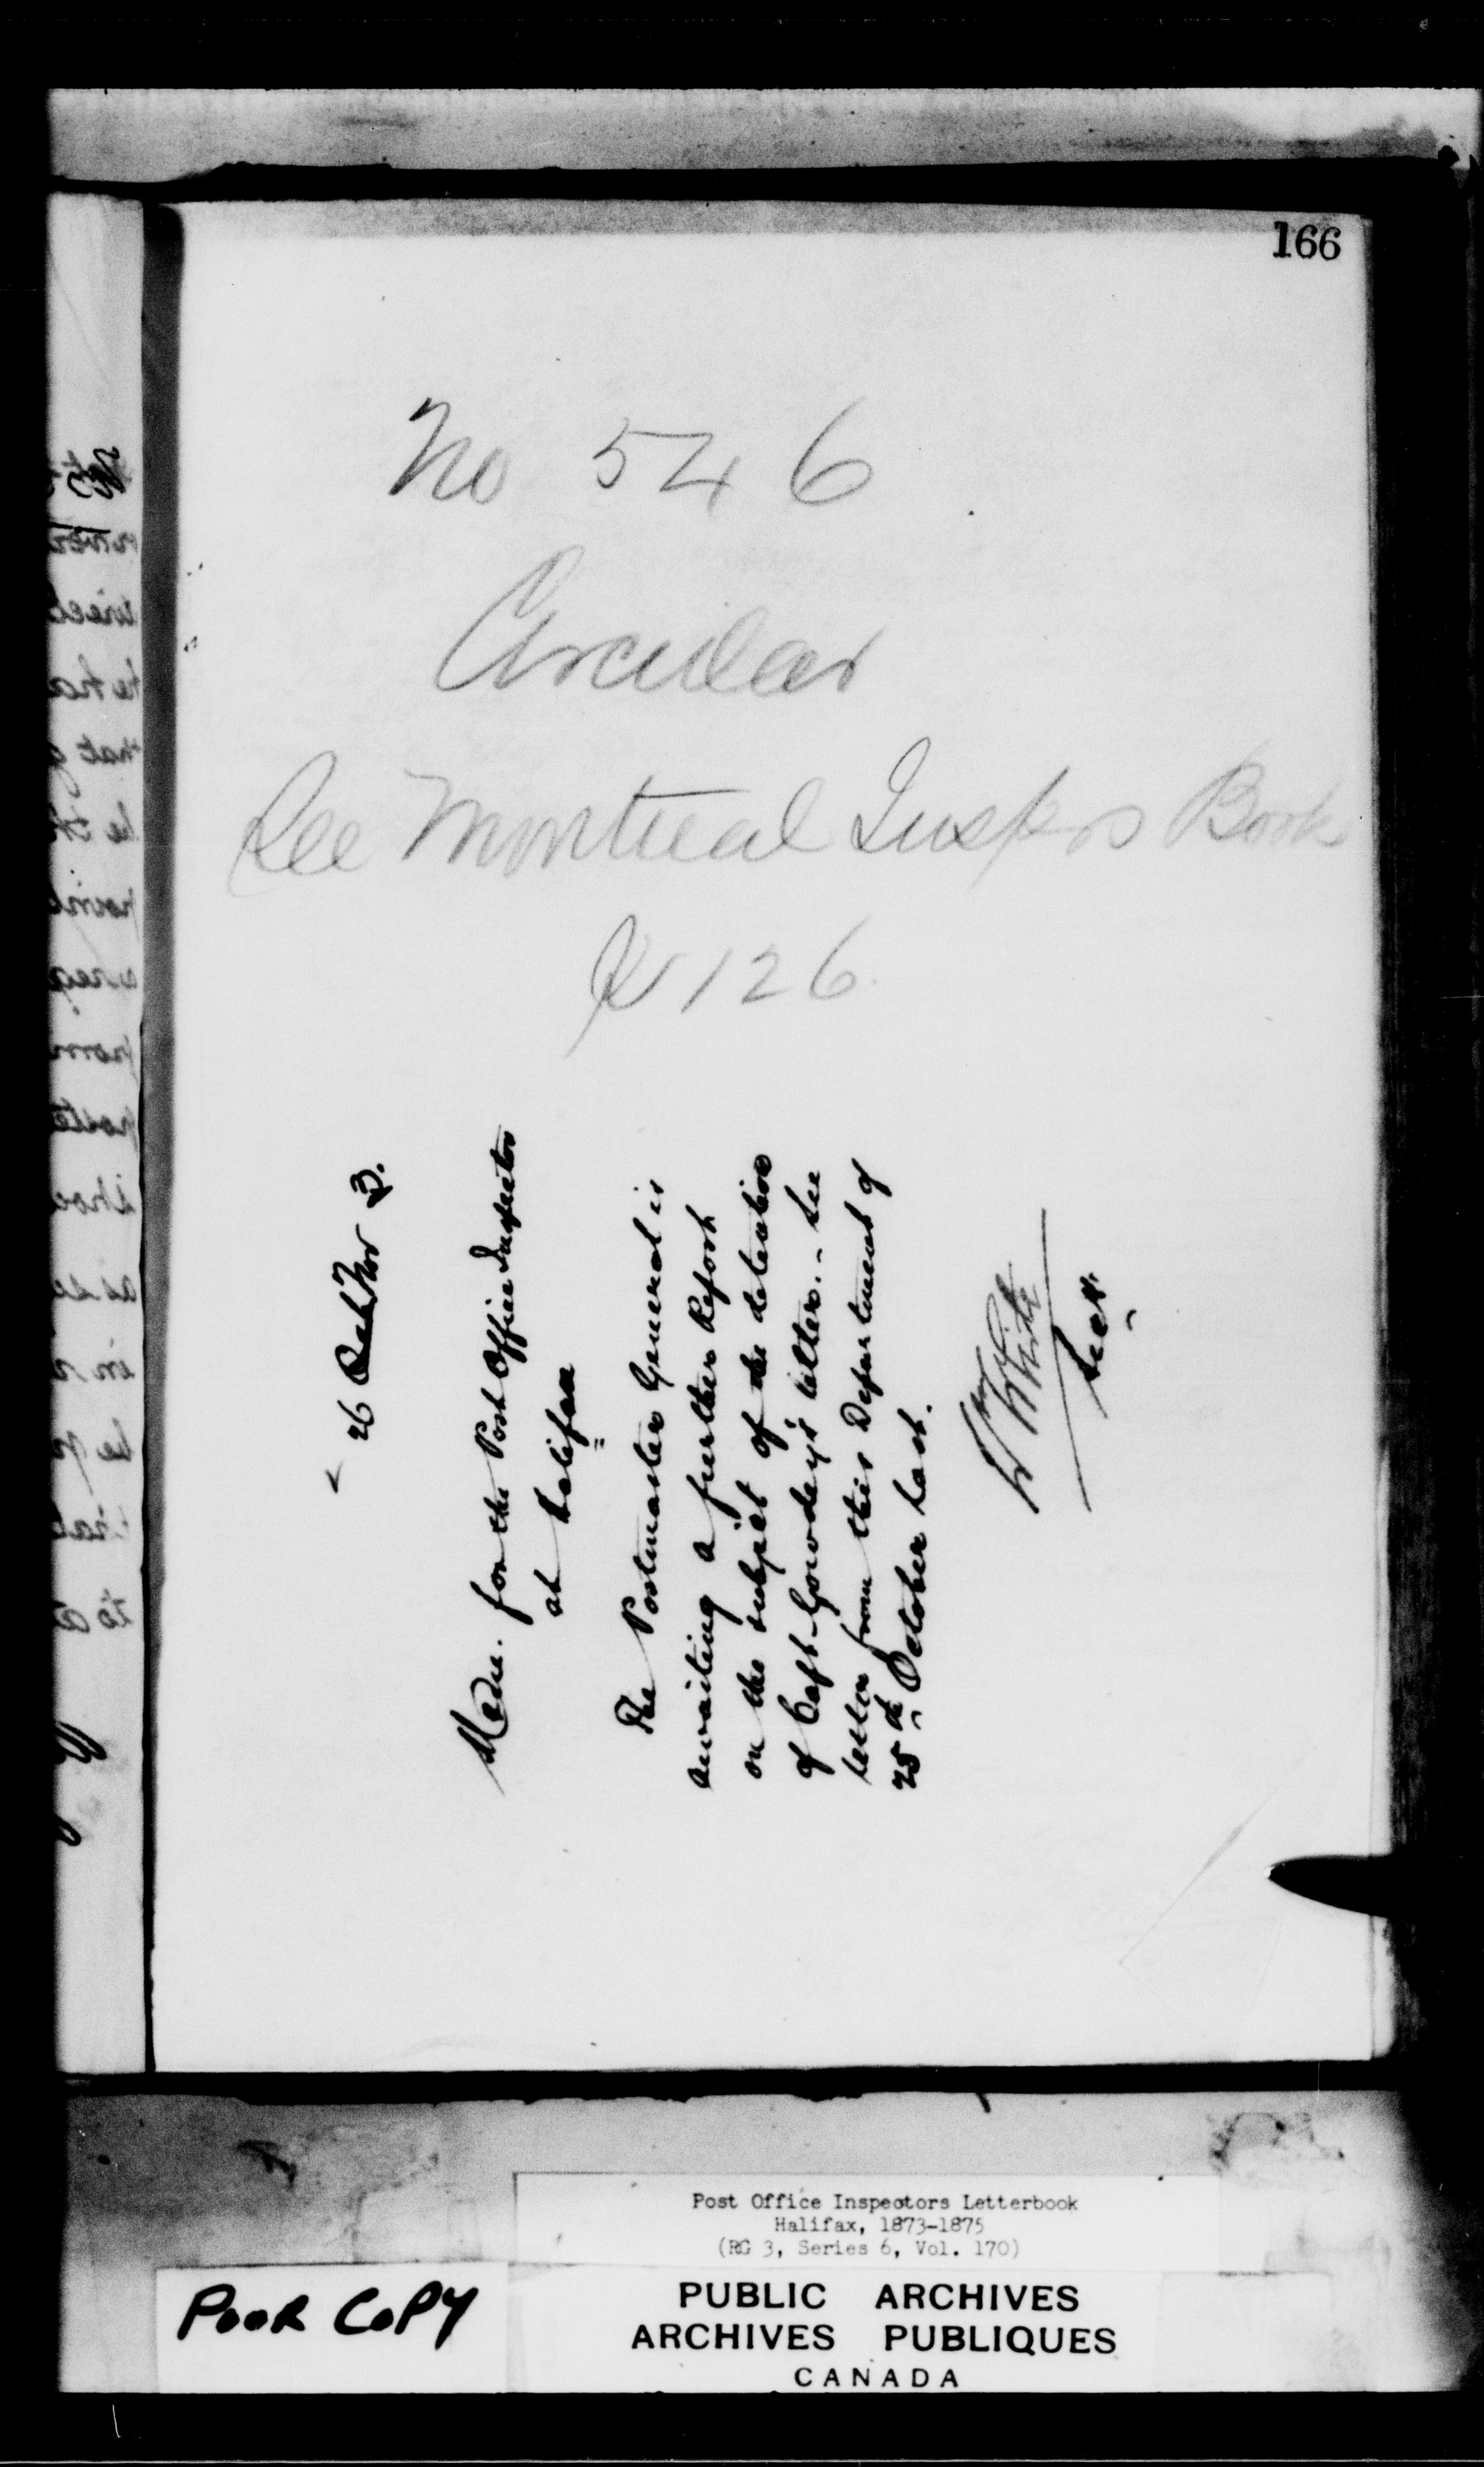 166
No 546
Circular
See Montreal Insprs Book
P 126.
26 Nov 3.
Mem. for the Post Office Inspector
at Halifax
The Postmaster General is
awaiting a further Report
on the subject of the detention
of Capt. Gowdey's letter. - See
letter from this Department of
25th October last.
W White
Secy.
Post Office Inspectors Letterbook
Halifax, 1873-1875
(RG 3, Series 6, Vol. 170)
POOR COPY
PUBLIC ARCHIVES
ARCHIVES PUBLIQUES
CANADA